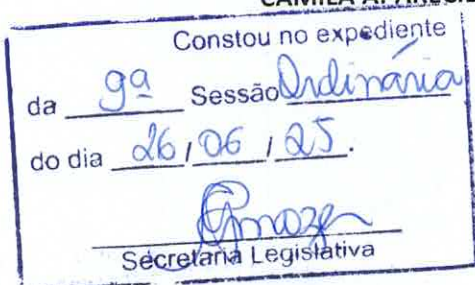 Constou no expediente
da 9ª Sessão Ordinária
do dia 26/06/25.
Secretaria Legislativa